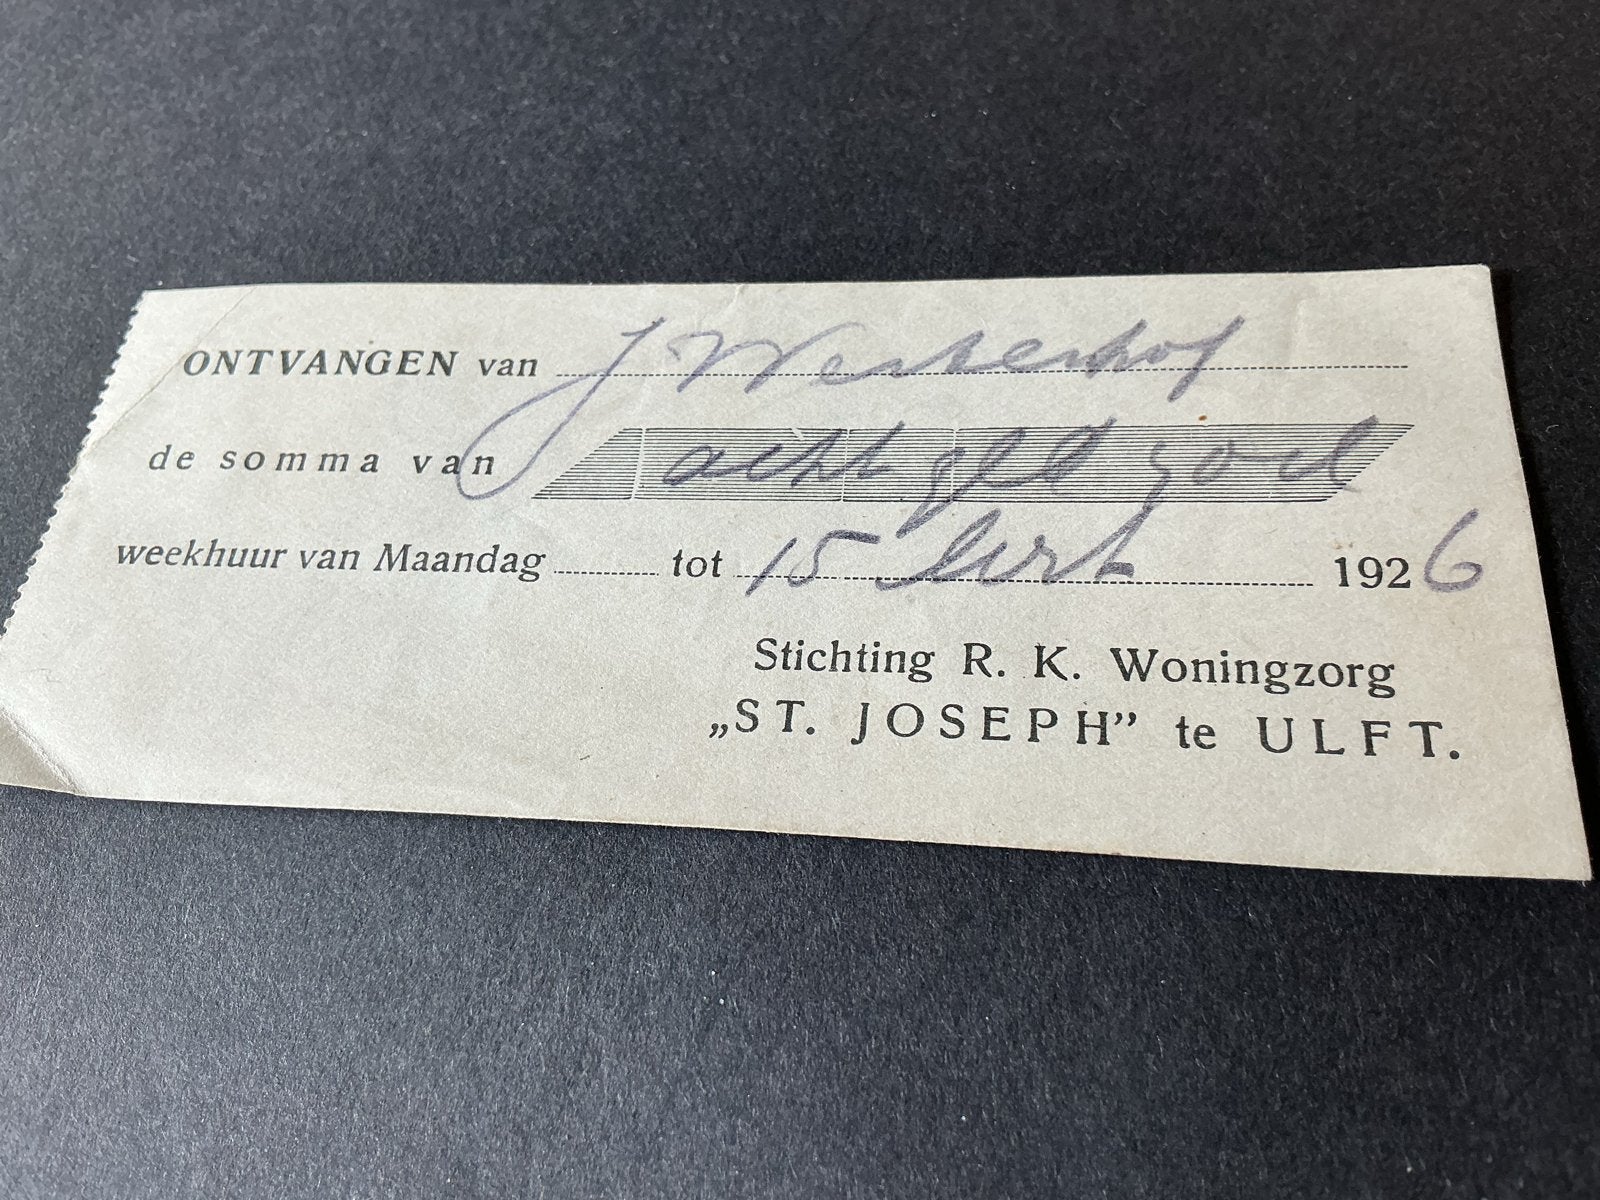 ONTVANGEN van J Westerhof
de somma van acht gld
weekhuur van Maandag tot 15 1926
Stichting R. K. Woningzorg
„ST. JOSEPH” te ULFT.